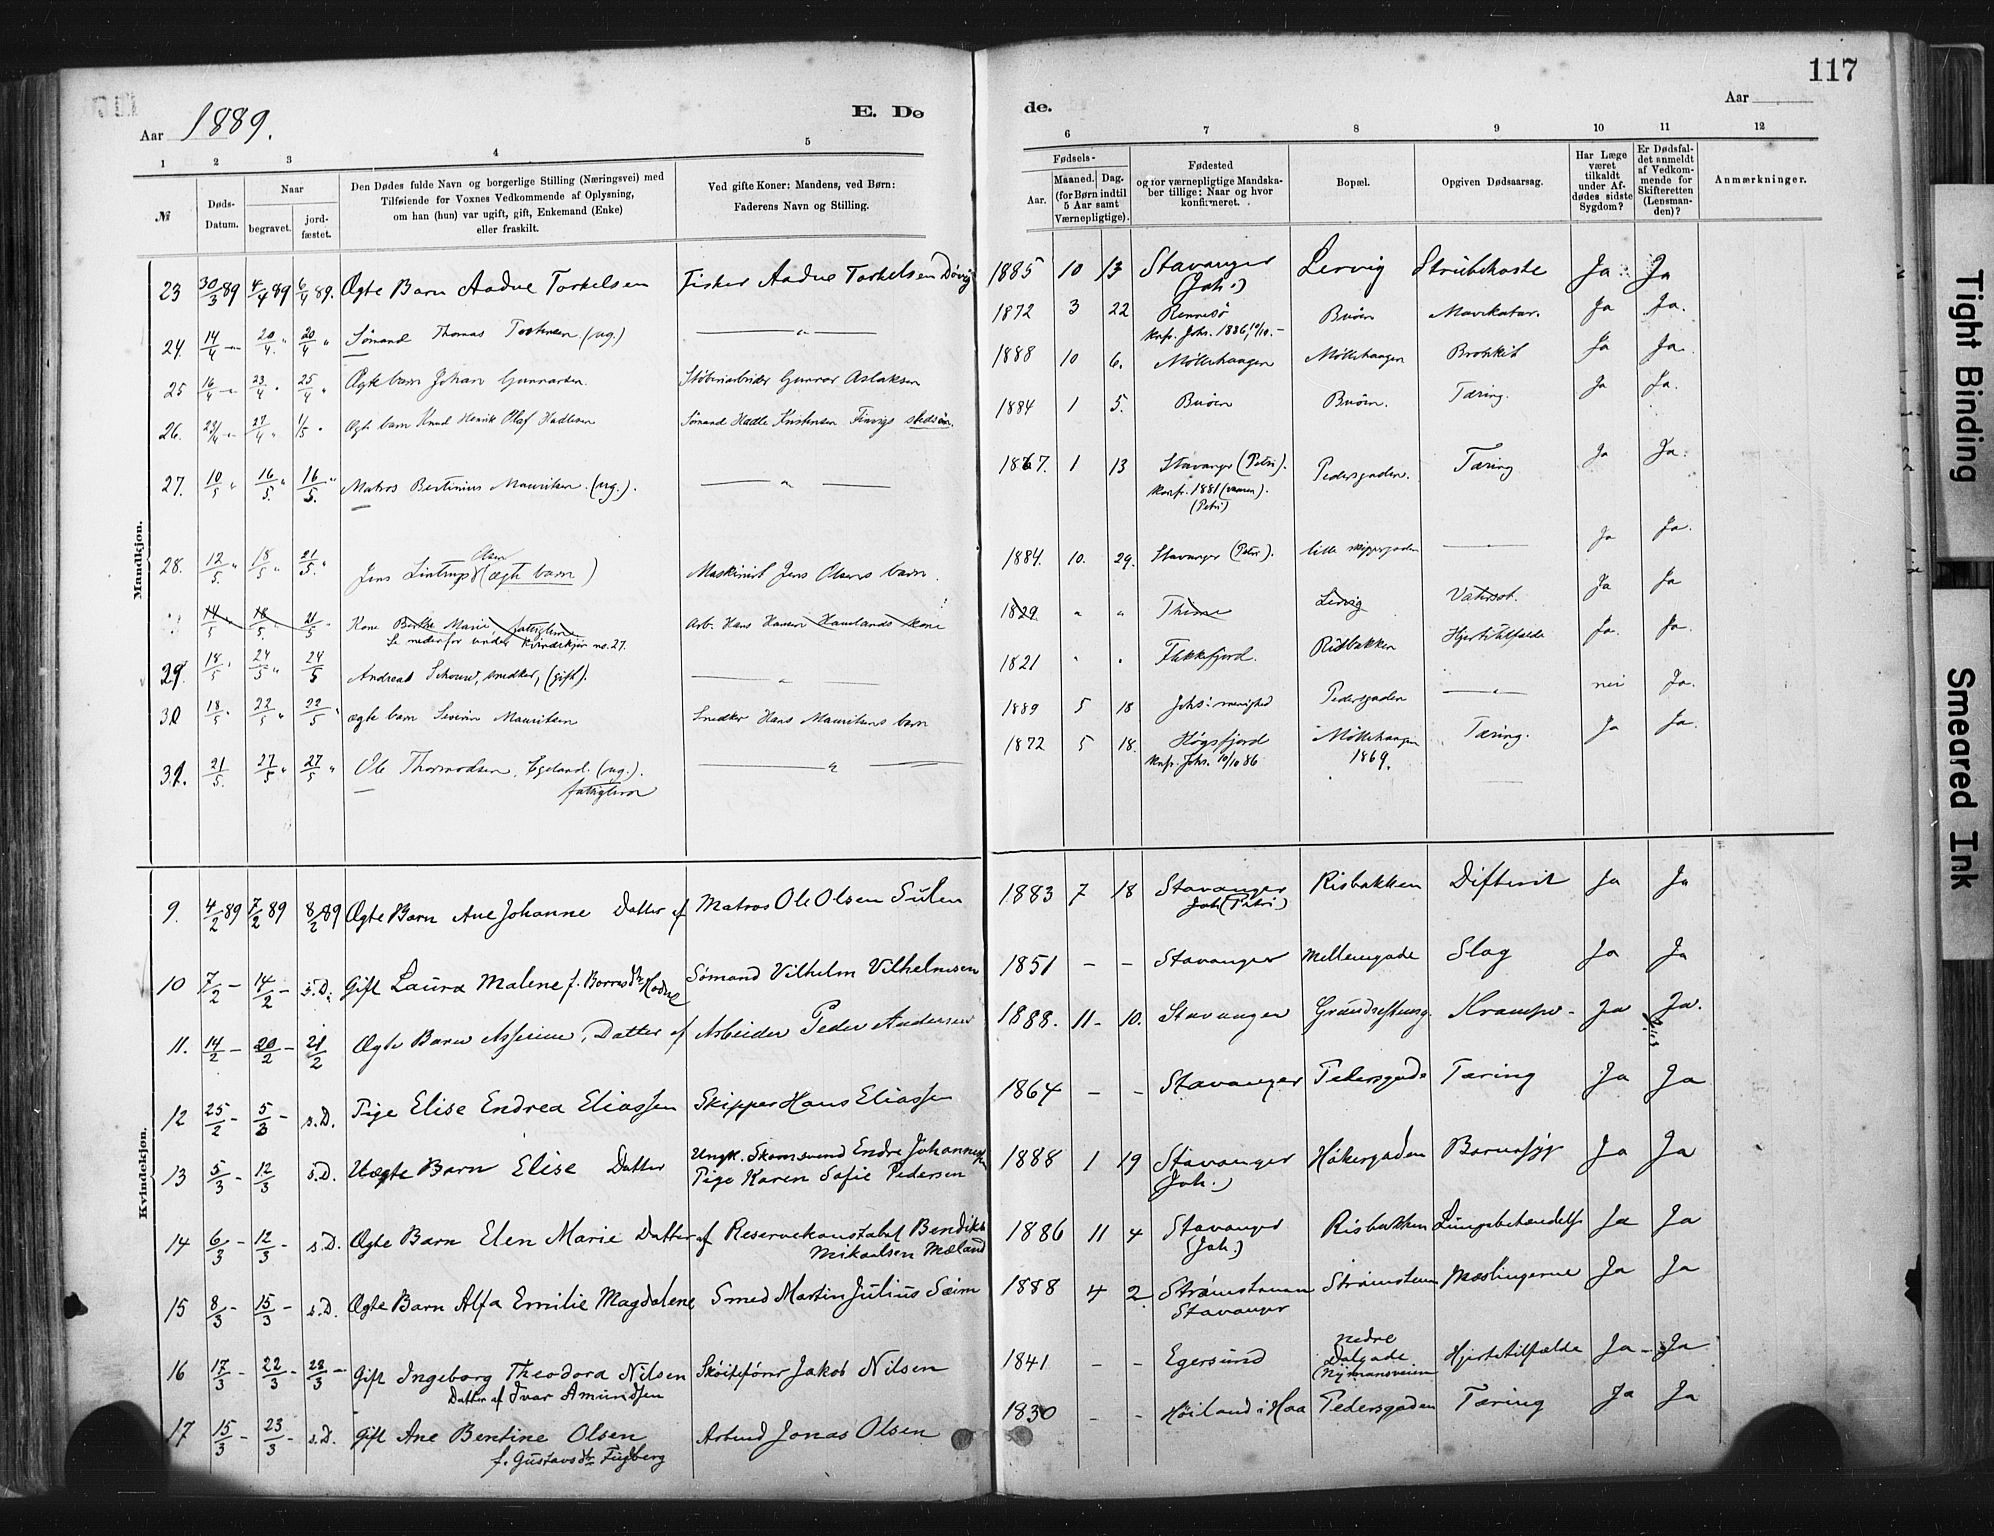 117
Aar 1889.
E. Dø
de.
Aar
1 2 3 4 5 6 7 8 9 10 11 12
№
Døds-Datum.
Naar
begravet.
jord-fæstet.
Den Dødes fulde Navn og borgerlige Stilling (Næringsvei) med
Tilføiende for Voxnes Vedkommende af Oplysning,
om han (hun) var ugift, gift, Enkemand (Enke)
eller fraskilt.
Ved gifte Koner: Mandens, ved Børn:
Faderens Navn og Stilling.
Fødsels-
Aar.
Maaned. Dag.
(for Børn indtil
5 Aar samt
Værnepligtige).
Fødested
og for værnepligtige Mandska-
ber tillige: Naar og hvor
konfirmeret.
Bopæl.
Opgiven Dødsaarsag.
Har Læge
været
tilkaldt
under Af-
dødes sidste
Sygdom?
Er Dødsfal-
det anmeldt
af Vedkom-
mende for
Skifteretten
(Lensman-
den)?
Anmærkninger.
Mandkjøn.
23 30/3 89 4/4 89 6/4 89. Ægte Barn Aadne Torkelsen Fisker Aadne Torkelsen Døvig 1885 10 13 Stavanger (Joh.) Lervig Strubehoste Ja Ja
24. 14/4 — 20/4 " 20/4 " Sømand Thomas (ug.) — " — 1872 3 22 Rennesø Buøen Mavekatar. Ja Ja.
Knf. Johs. 1886, 10/10. -
25 16/4 — 23/4 " 25/4 " Ægte barn Johan Gunnarsen. Støberiarbeider Gunnar Aslaksen 1888 10 6. Møllehaugen Møllehaugen Bronkit Ja Ja.
26. 23/4 — 27/4 " 1/5 " Ægte barn Knud Henrik Olaf Hadlesen Sømand Hadle Kristensen Finvigs stedsøn. 1884 1 5. Buøen Buøen. Tæring. Ja Ja.
27. 10/5 " 16/5. " 16/5. " Matros Bertinius Mauritsen. (ug.). — " — 1867. 1 13 Stavanger (Petri). Pedersgaden. Tæring Ja Ja.
Konf. 1881 (vaaren).
(Petri)
28. 12/5 " 18/5 " 21/5. " Jens Lintrup Olsen (ægte barn) Maskinist Jens Olsens barn. 1884. 10. 29. Stavanger (Petri). lille skippergaden — Ja Ja.
14/5 18/5 21/5 - Kone Marie fattiglem Arb. Hans Hansen Hamlands kone 1829. " " Thime Lervig Vatersot. Ja Ja
Se nedenfor under Kvindekjøn no. 27.
29. 18/5 " 24/5 " 24/5 Andreas Schouw, snedker, (gift). — " — 1821 " " Flekkefjord. Risbakken Hjertetilfælde Ja. Ja.
30 18/5 " 22/5 " 22/5 " ægte barn Severin Mauritsen Snedker Hans Mauritsens barn 1889 5 18 Johs: menighed Pedersgaden — " — nei Ja.
31. 21/5. 27/5 " 27/5 " Ole Thormodsen. Egeland. (ug.). — " — 1872 5 18. Høgsfjord Møllehaugen Tæring. Ja Ja.
fattiglem Knf. Johs. 10/10 86 1869.
Kvindekjøn.
9. 4/2 89 7/2 89 8/2 89 Ægte Barn Ane Johanne Datter af Matros Ole Olsen Sulen 1883 7 18 Stavanger Joh (Petri) Risbakken Difterit Ja Ja
10 7/2 — 14/2 — s.D. Gift Laura Malene f. Hodne Sømand Vilhelm Vilhelmsen 1851 — — Stavanger Mellemgade Slag Ja Ja
11. 14/2 — 20/2 — 21/2 Ægte Barn Asserine, Datter af Arbeider Peder Andersen 1888. 11 — 10. Stavanger Krampe - Ja Ja.
12 25/2 — 5/3 — s.D. Pige Elise Endrea Eliassen Skipper Hans Eliassen 1864 — — Stavanger Pedersgade Tæring Ja Ja
13 5/3 — 12/3 s.D. Uægte Barn Elise Datter Ungk. Skomsvend Endre Johannessen 1888 1 19 Stavanger (Joh.) Høkergaden Barnesyg Ja Ja
Pige Karen Sofie Pedersen
14 6/3 — 12/3 — s.D. Ægte Barn Elen Marie Datter af Reservekonstabel Bendikt 1886 11 4 Stavanger (Joh.) Risbakken Lungebetændelse Ja Ja
Mikaelsen Mæland
15 8/3 — 15/3 — s.D. Ægte Barn Alfa Emilie Magdalene Smed Martin Julius Sæim 1888 4 2 Strømstenen Stavanger Strømstenen Mæslingerne Ja Ja
16 17/3 — 22/3 — 23/3 — Gift Ingeborg Theodora Nilsen Skøitefører Jakob Nilsen 1841 — — Egersund nedre Dalgade (Nymansveien Hjertetilfælde Ja - Ja
Datter af Ivar Amundsen
17 15/3 — 23/3 — s.D. Gift Ane Bentine Olsen Arbeid Jonas Olsen 1830 — — Høiland i Haa Pedersgaden Tæring Ja Ja
f. Gustavsdtr Fuglberg
Tight Binding
Smeared Ink